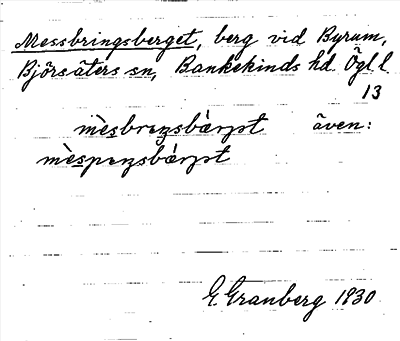 Messbringsberget, berg vid Byrum,
Björsäters sn, Bankekinds hd. Ögl l.
13
mèsbreŋsbær̀ɟt även:
mèspeŋsbær̀ɟt
G. Granberg 1930